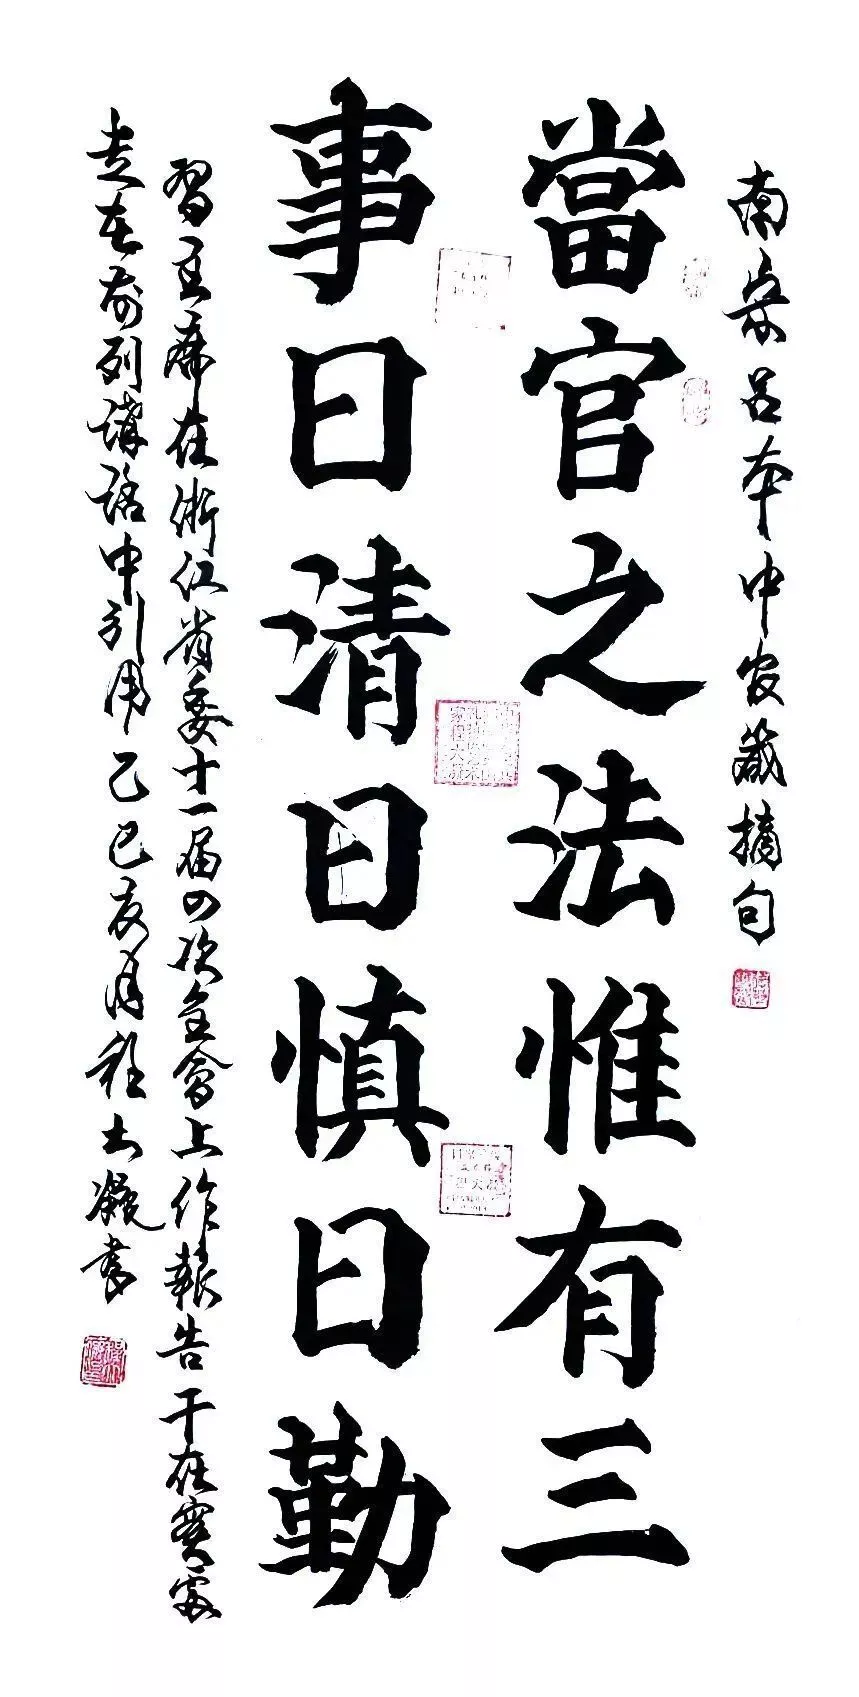 南宋吕本中官箴摘句
當官之法惟有三
事曰清曰慎曰勤
習主席在浙江省委十一届四次全會上作報告干在實處
走在前列講話中引用乙巳夜月程大凝書